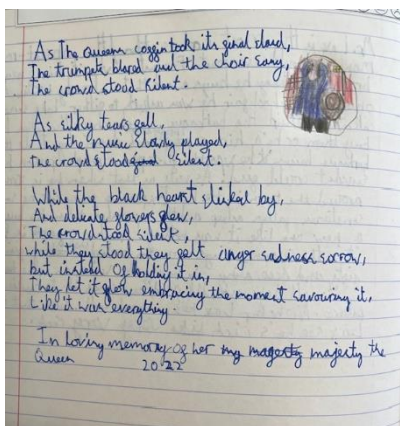 As The Queenn coggin took its ginal cloud,
The trumpets blared and the choir sang,
The crowd stood silent.
As silky tears gell,
And the music slowly played,
The crowd stood silent.
While the black heart slinked by,
And delicate glovers glew,
The crowd stood silent,
while they stood they gelt anger sadness sorrow,
but instead of holding it in,
They let it glow embracing the moment savouring it,
Like it was everything.
In loving memory of her my magesty majesty the
Queen 2022